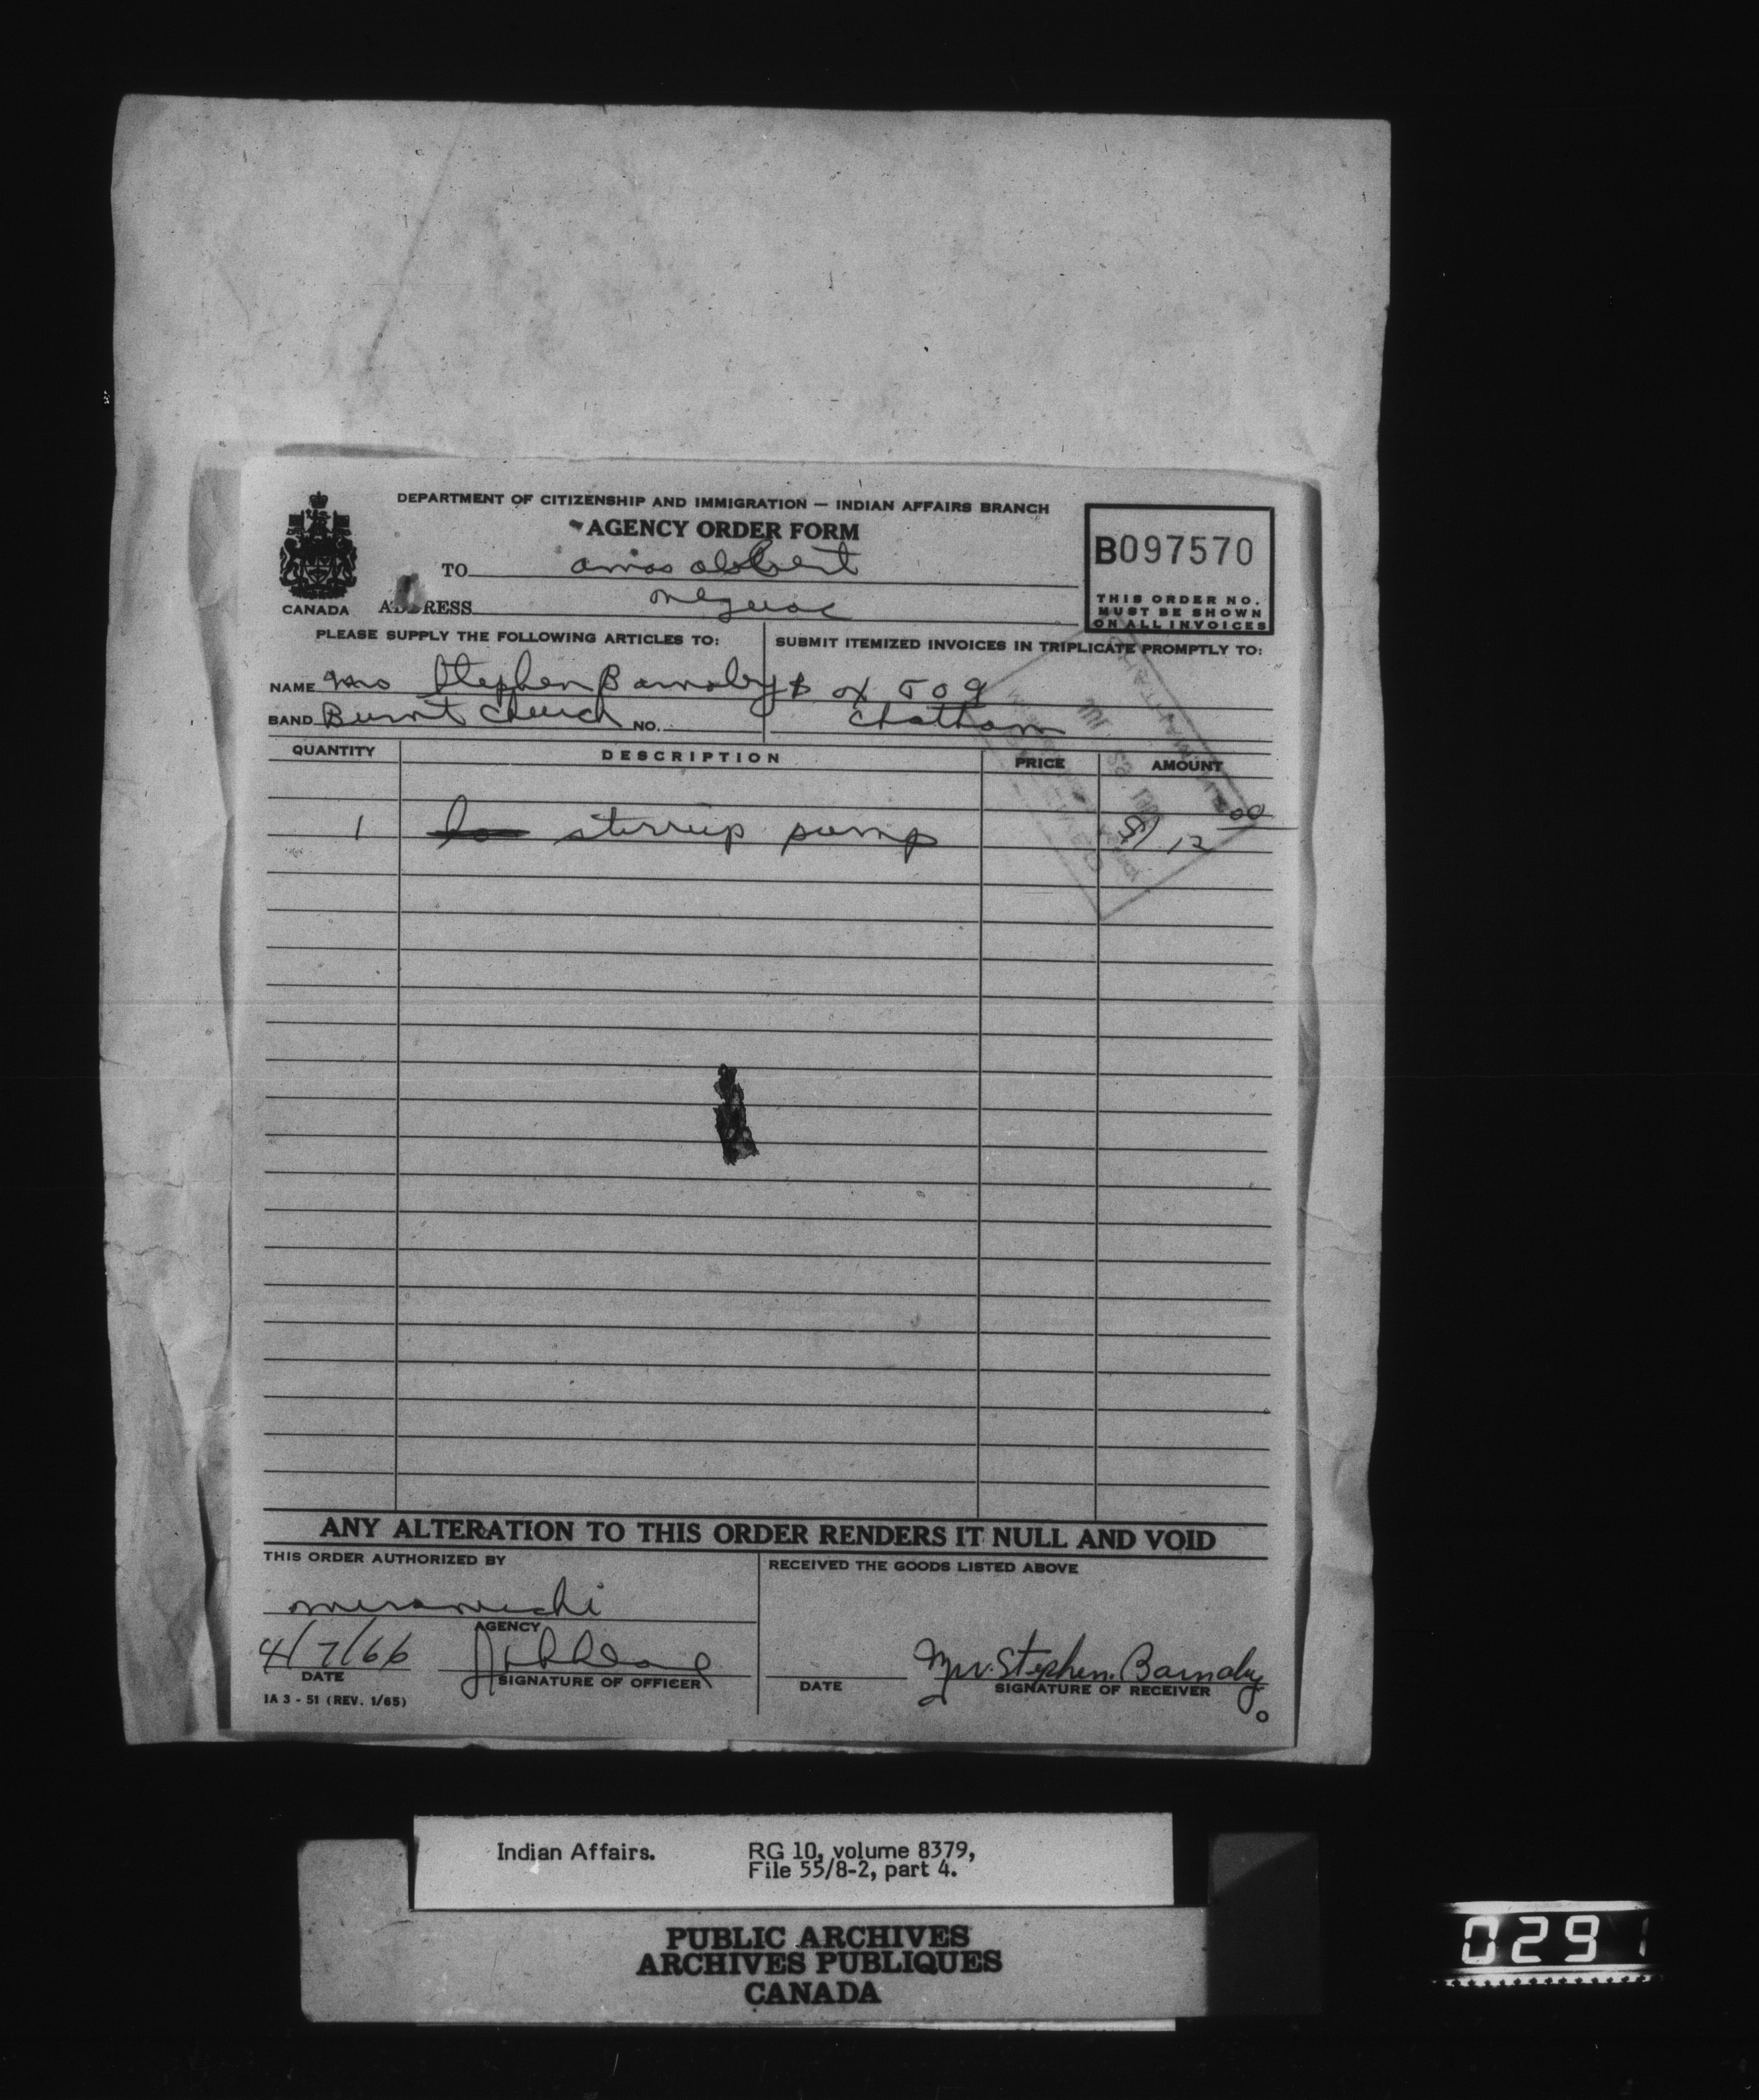 DEPARTMENT OF CITIZENSHIP AND IMMIGRATION — INDIAN AFFAIRS BRANCH
AGENCY ORDER FORM
B097570
THIS ORDER NO.
MUST BE SHOWN
ON ALL INVOICES
CANADA
TO amos albert
ADDRESS neguac
PLEASE SUPPLY THE FOLLOWING ARTICLES TO:
SUBMIT ITEMIZED INVOICES IN TRIPLICATE PROMPTLY TO:
NAME Mrs Stephen Barnaby
Box 509
BAND Burnt Church NO.
Chatham
QUANTITY DESCRIPTION PRICE AMOUNT
1 stirrup pump 12 00
ANY ALTERATION TO THIS ORDER RENDERS IT NULL AND VOID
THIS ORDER AUTHORIZED BY
RECEIVED THE GOODS LISTED ABOVE
miramichi
AGENCY
4/7/66
DATE
SIGNATURE OF OFFICER
DATE
Mrs. Stephen. Barnaby
SIGNATURE OF RECEIVER
IA 3 - 51 (REV. 1/65)
Indian Affairs. RG 10, volume 8379,
File 55/8-2, part 4.
PUBLIC ARCHIVES
ARCHIVES PUBLIQUES
CANADA
0291